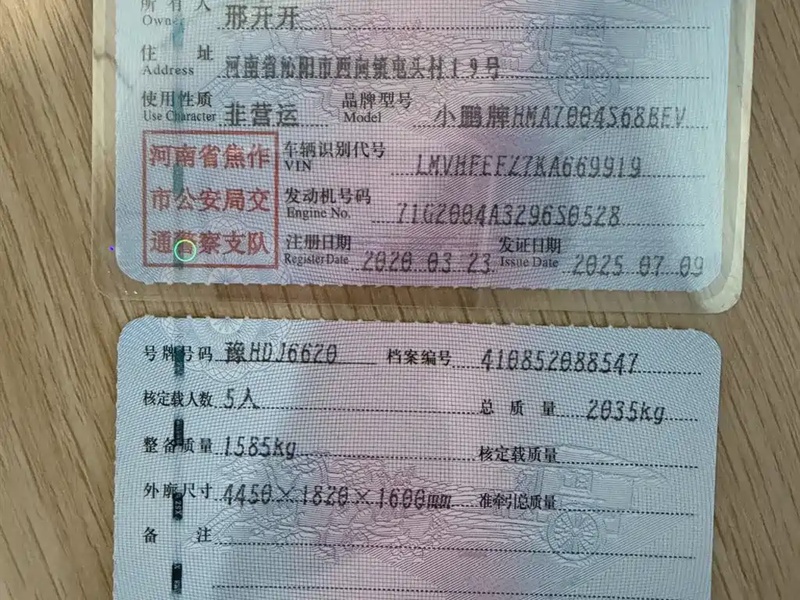 所有人 邢开开
Owner
住址 河南省沁阳市西向镇屯头村19号
Address
使用性质 非营运 品牌型号 小鹏牌HMA7004S68BEV
Use Character Model
河南省焦作
市公安局交
通警察支队
车辆识别代号 LMVHFEFZ7KA669919
VIN
发动机号码 71G2004A3296S0528
Engine No.
注册日期 2020-03-23 发证日期 2025-07-09
Register Date Issue Date
号牌号码 豫HDJ6620 档案编号 410852088547
核定载人数 5人 总质量 2035kg
整备质量 1585kg 核定载质量
外廓尺寸 4450×1820×1600mm 准牵引总质量
备注